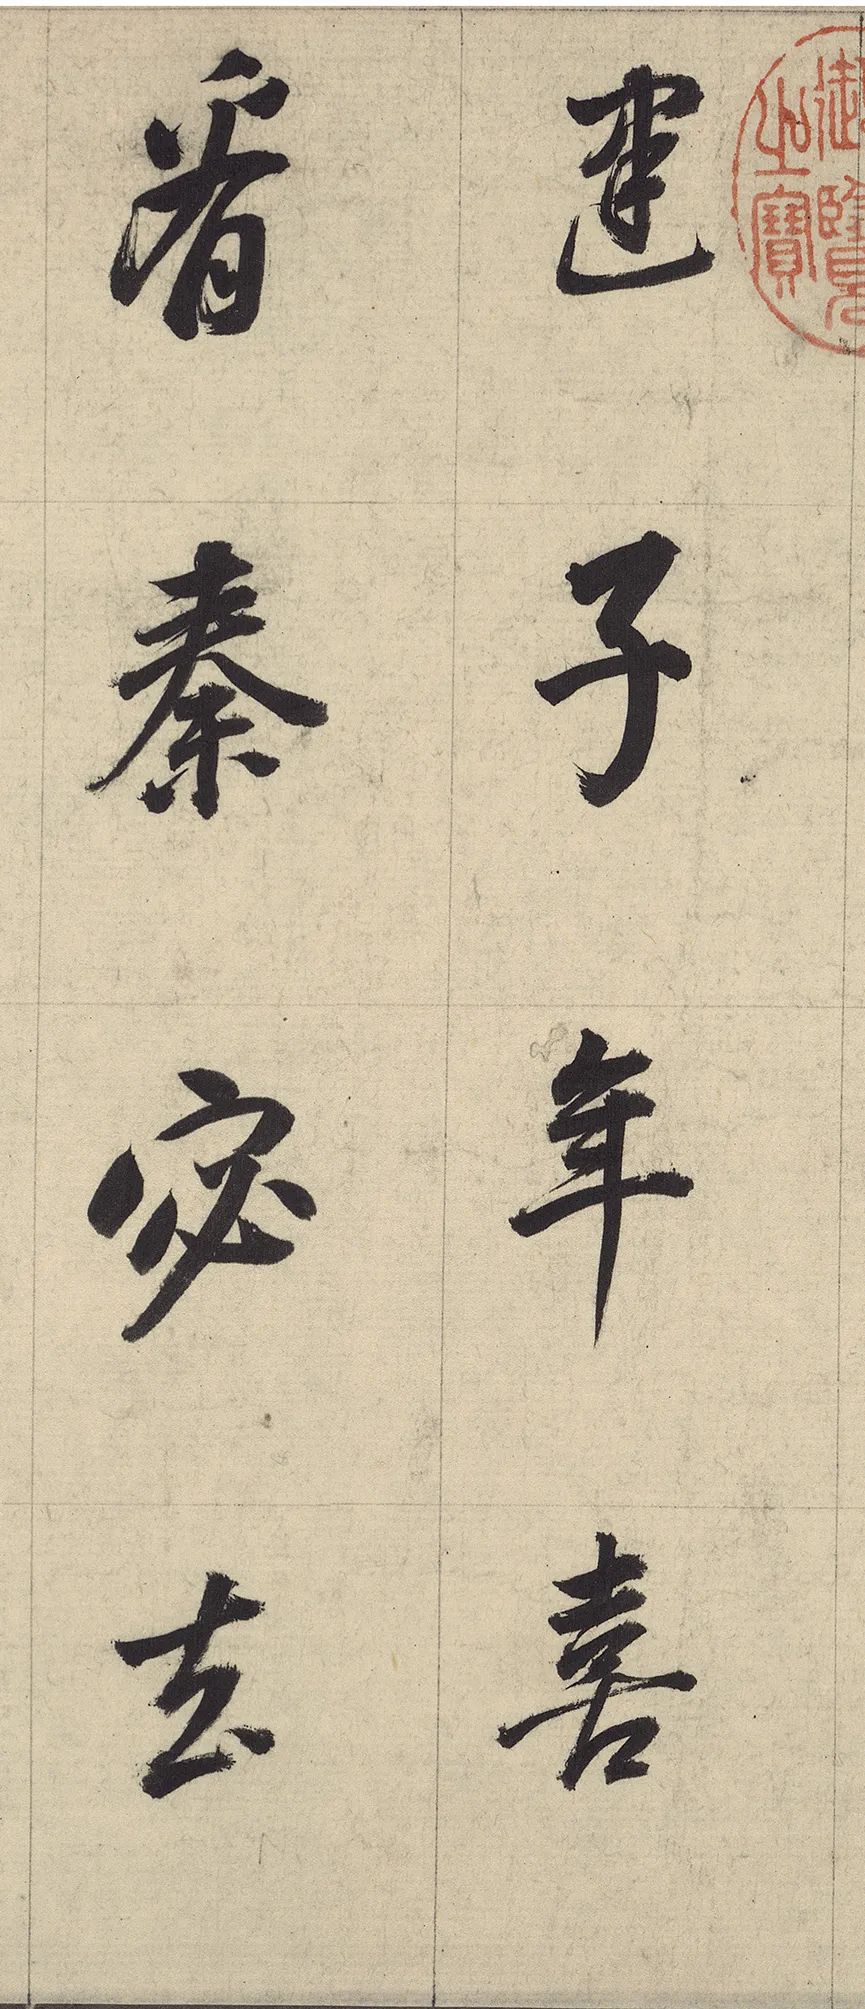 建子年喜
看秦宓去
御覽之寶